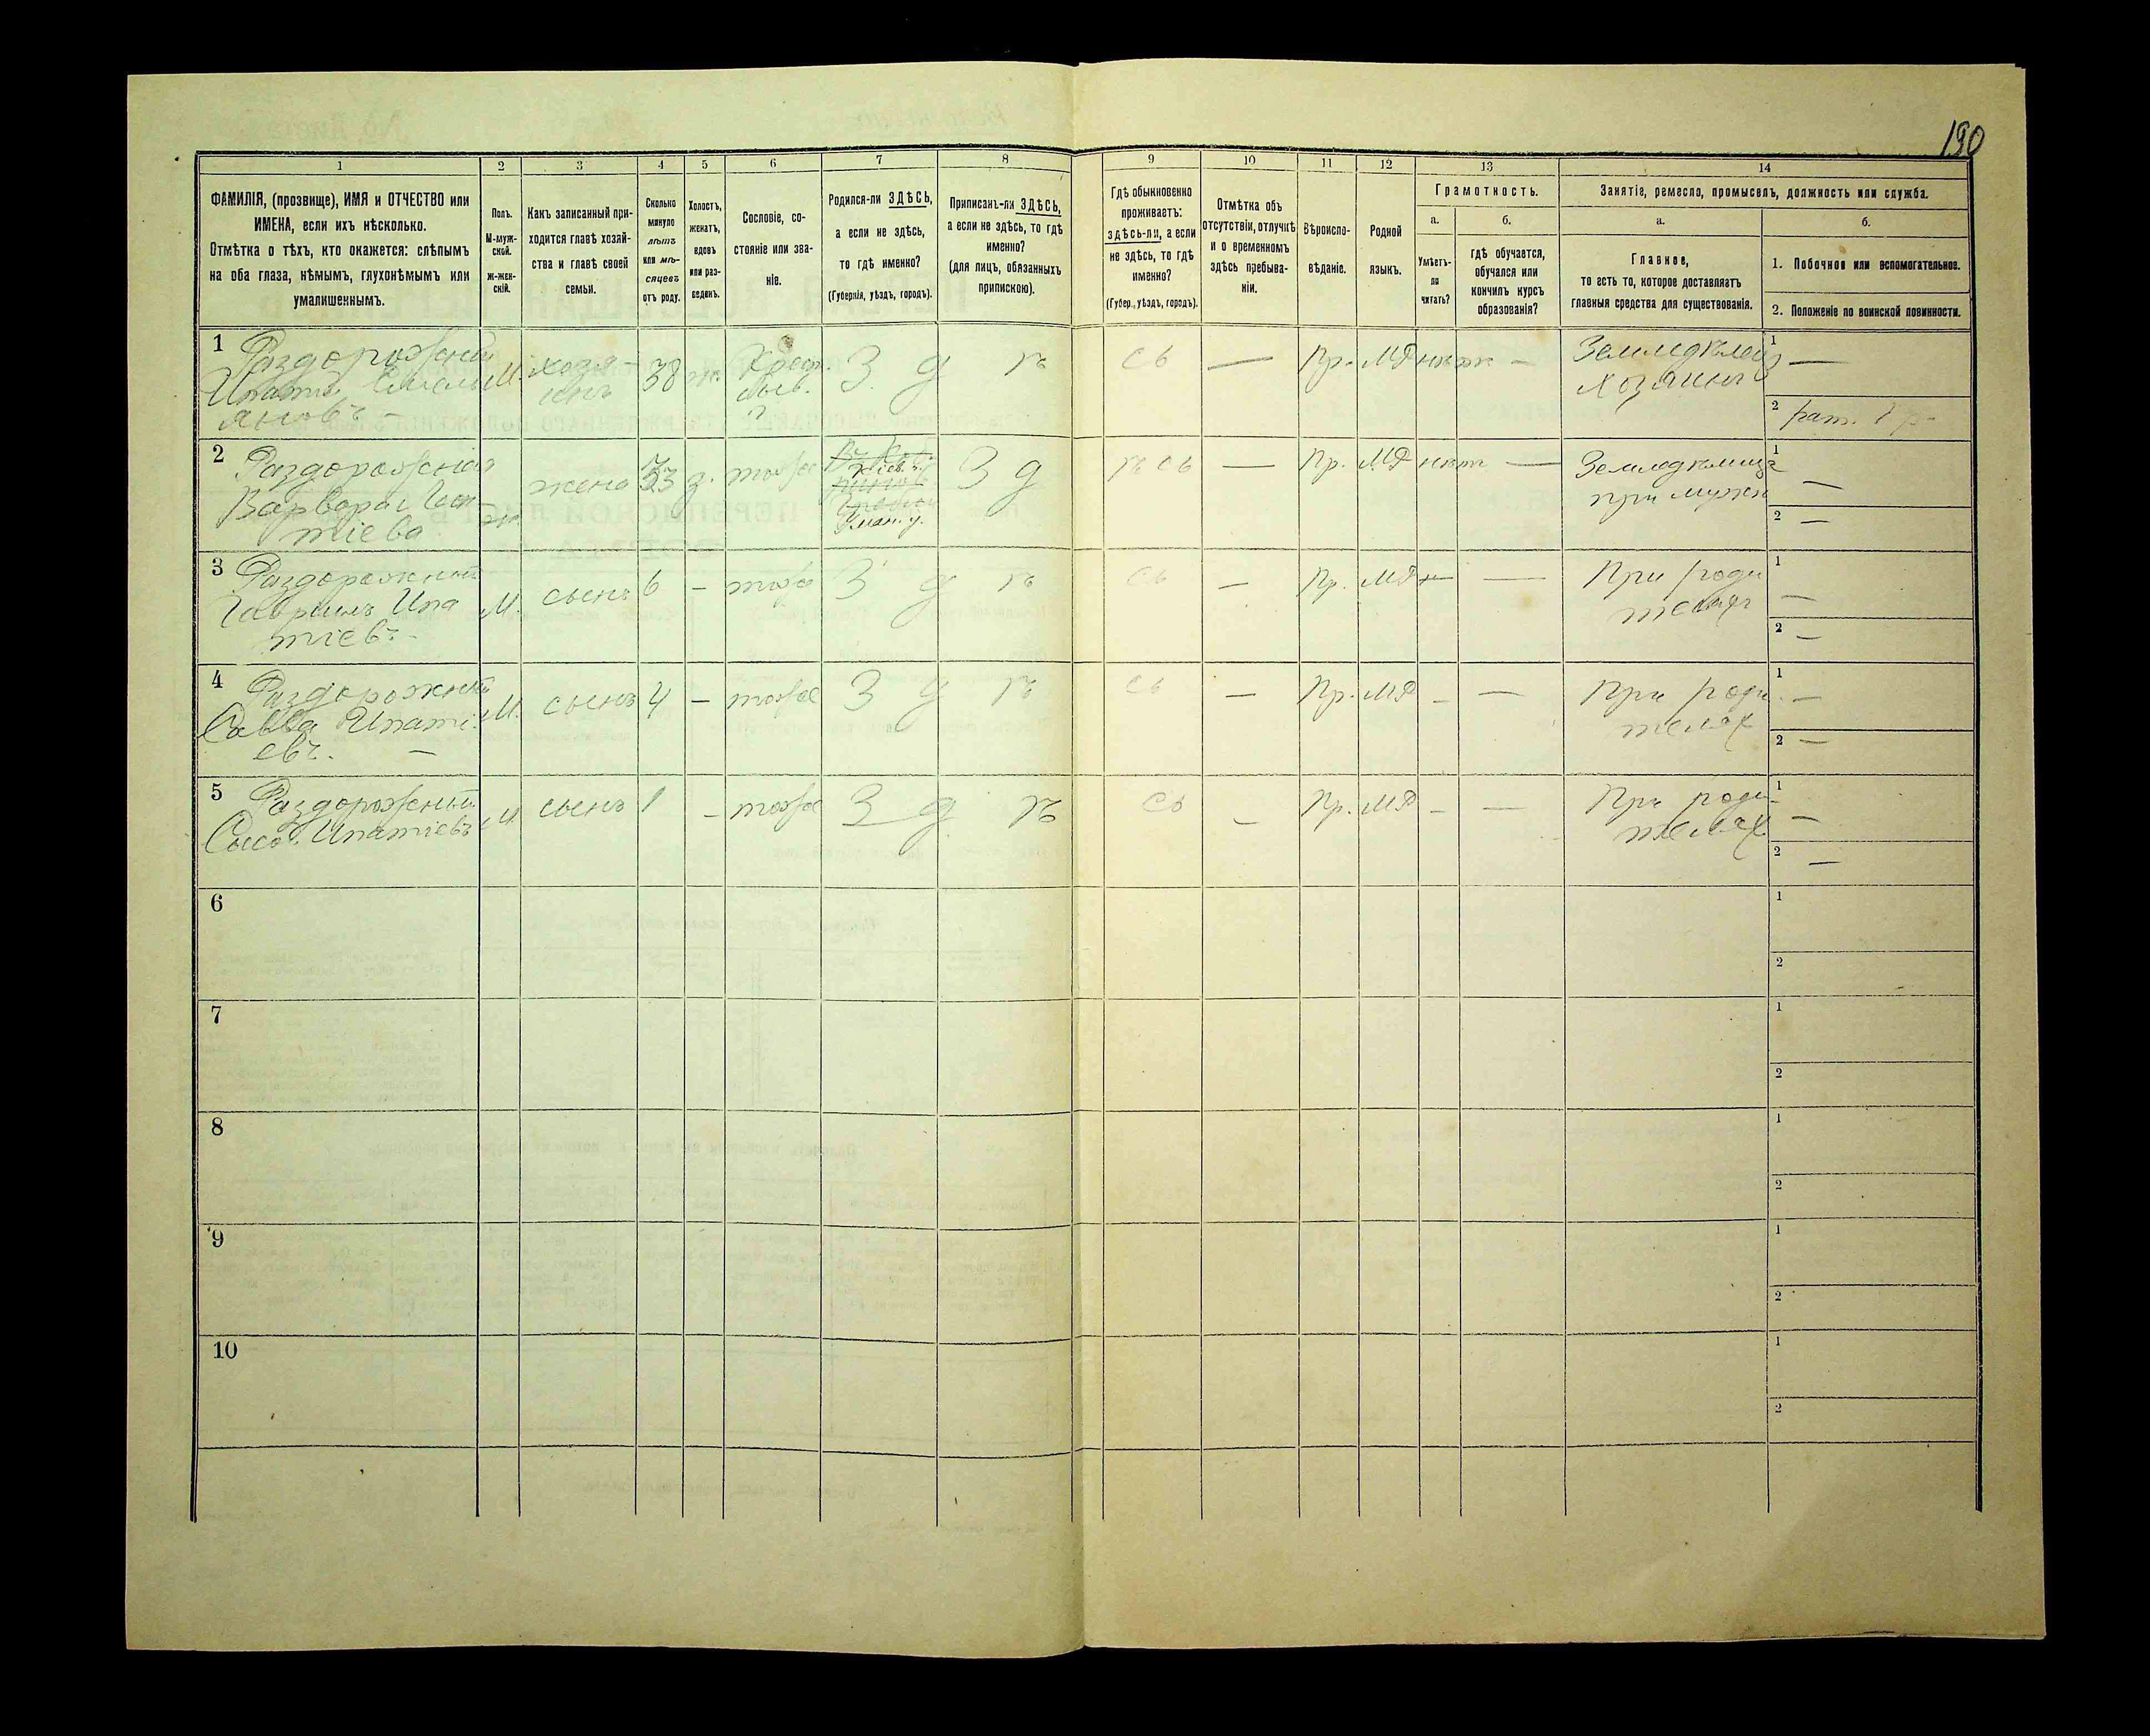 190
1
2
3
4
5
6
7
8
9
10
11
12
13
14
ФАМИЛІЯ, (прозвище), ИМЯ и ОТЧЕСТВО или
ИМЕНА, если ихъ нѣсколько.
Отмѣтка о тѣхъ, кто окажется: слѣпымъ
на оба глаза, нѣмымъ, глухонѣмымъ или
умалишеннымъ.
Полъ.
М-муж-
ской.
ж-жен-
скій.
Какъ записанный при-
ходится главѣ хозяй-
ства и главѣ своей
семьи.
Сколько
минуло
лѣтъ
или мѣ-
сяцевъ
отъ роду.
Холостъ,
женатъ,
вдовъ
или раз-
веденъ.
Сословіе, со-
стояніе или зва-
ніе.
Родился-ли ЗДѢСЬ,
а если не здѣсь,
то гдѣ именно?
(Губернія, уѣздъ, городъ).
Приписанъ-ли ЗДѢСЬ,
а если не здѣсь, то гдѣ
именно?
(для лицъ, обязанныхъ
припискою).
Гдѣ обыкновенно
проживаетъ:
здѣсь-ли, а если
не здѣсь, то гдѣ
именно?
(Губер., уѣздъ, городъ).
Отмѣтка объ
отсутствіи, отлучкѣ
и о временномъ
здѣсь пребыва-
ніи.
Вѣроиспо-
вѣданіе.
Родной
языкъ.
Грамотность.
а.
Умѣетъ-
ли
читать?
б.
гдѣ обучается,
обучался или
кончилъ курсъ
образованія?
Занятіе, ремесло, промыселъ, должность или служба.
а.
Главное,
то есть то, которое доставляетъ
главныя средства для существованія.
б.
1. Побочное или вспомогательное.
2. Положеніе по воинской повинности.
1 Раздорожный
Ипатій Емель
яновъ –
М. хозя-
инъ 38 ж. Крест.
З д ѣ сь — Пр. МР нѣтъ —
Земледѣлецъ
хозяинъ
1 —
2 рат. 1 р-
2 Раздорожная
Варвара
тіева
ж. жена 33 з. тоже
Кіев. г.
Уман. у.
З д ѣ сь — Пр. МР нѣтъ —
Земледѣлица
при мужѣ
1 —
2 —
3 Раздорожный
Гаврiилъ Ипа
тіевъ -
М. сынъ 6 – тоже З д ѣ сь — Пр. МР — —
При роди
теляхъ
1 —
2 —
4 Раздорожный
Савва Ипаті-
евъ. —
М. сынъ 4 – тоже З д ѣ сь — Пр. МР – —
При роди
телях
1 —
2 —
5 Раздорожный
Сысой Ипатіевъ
М. сынъ 1 – тоже З д ѣ сь — Пр. МР – —
При роди-
телях
1 —
2 —
6
1
2
7
1
2
8
1
2
9
1
2
10
1
2